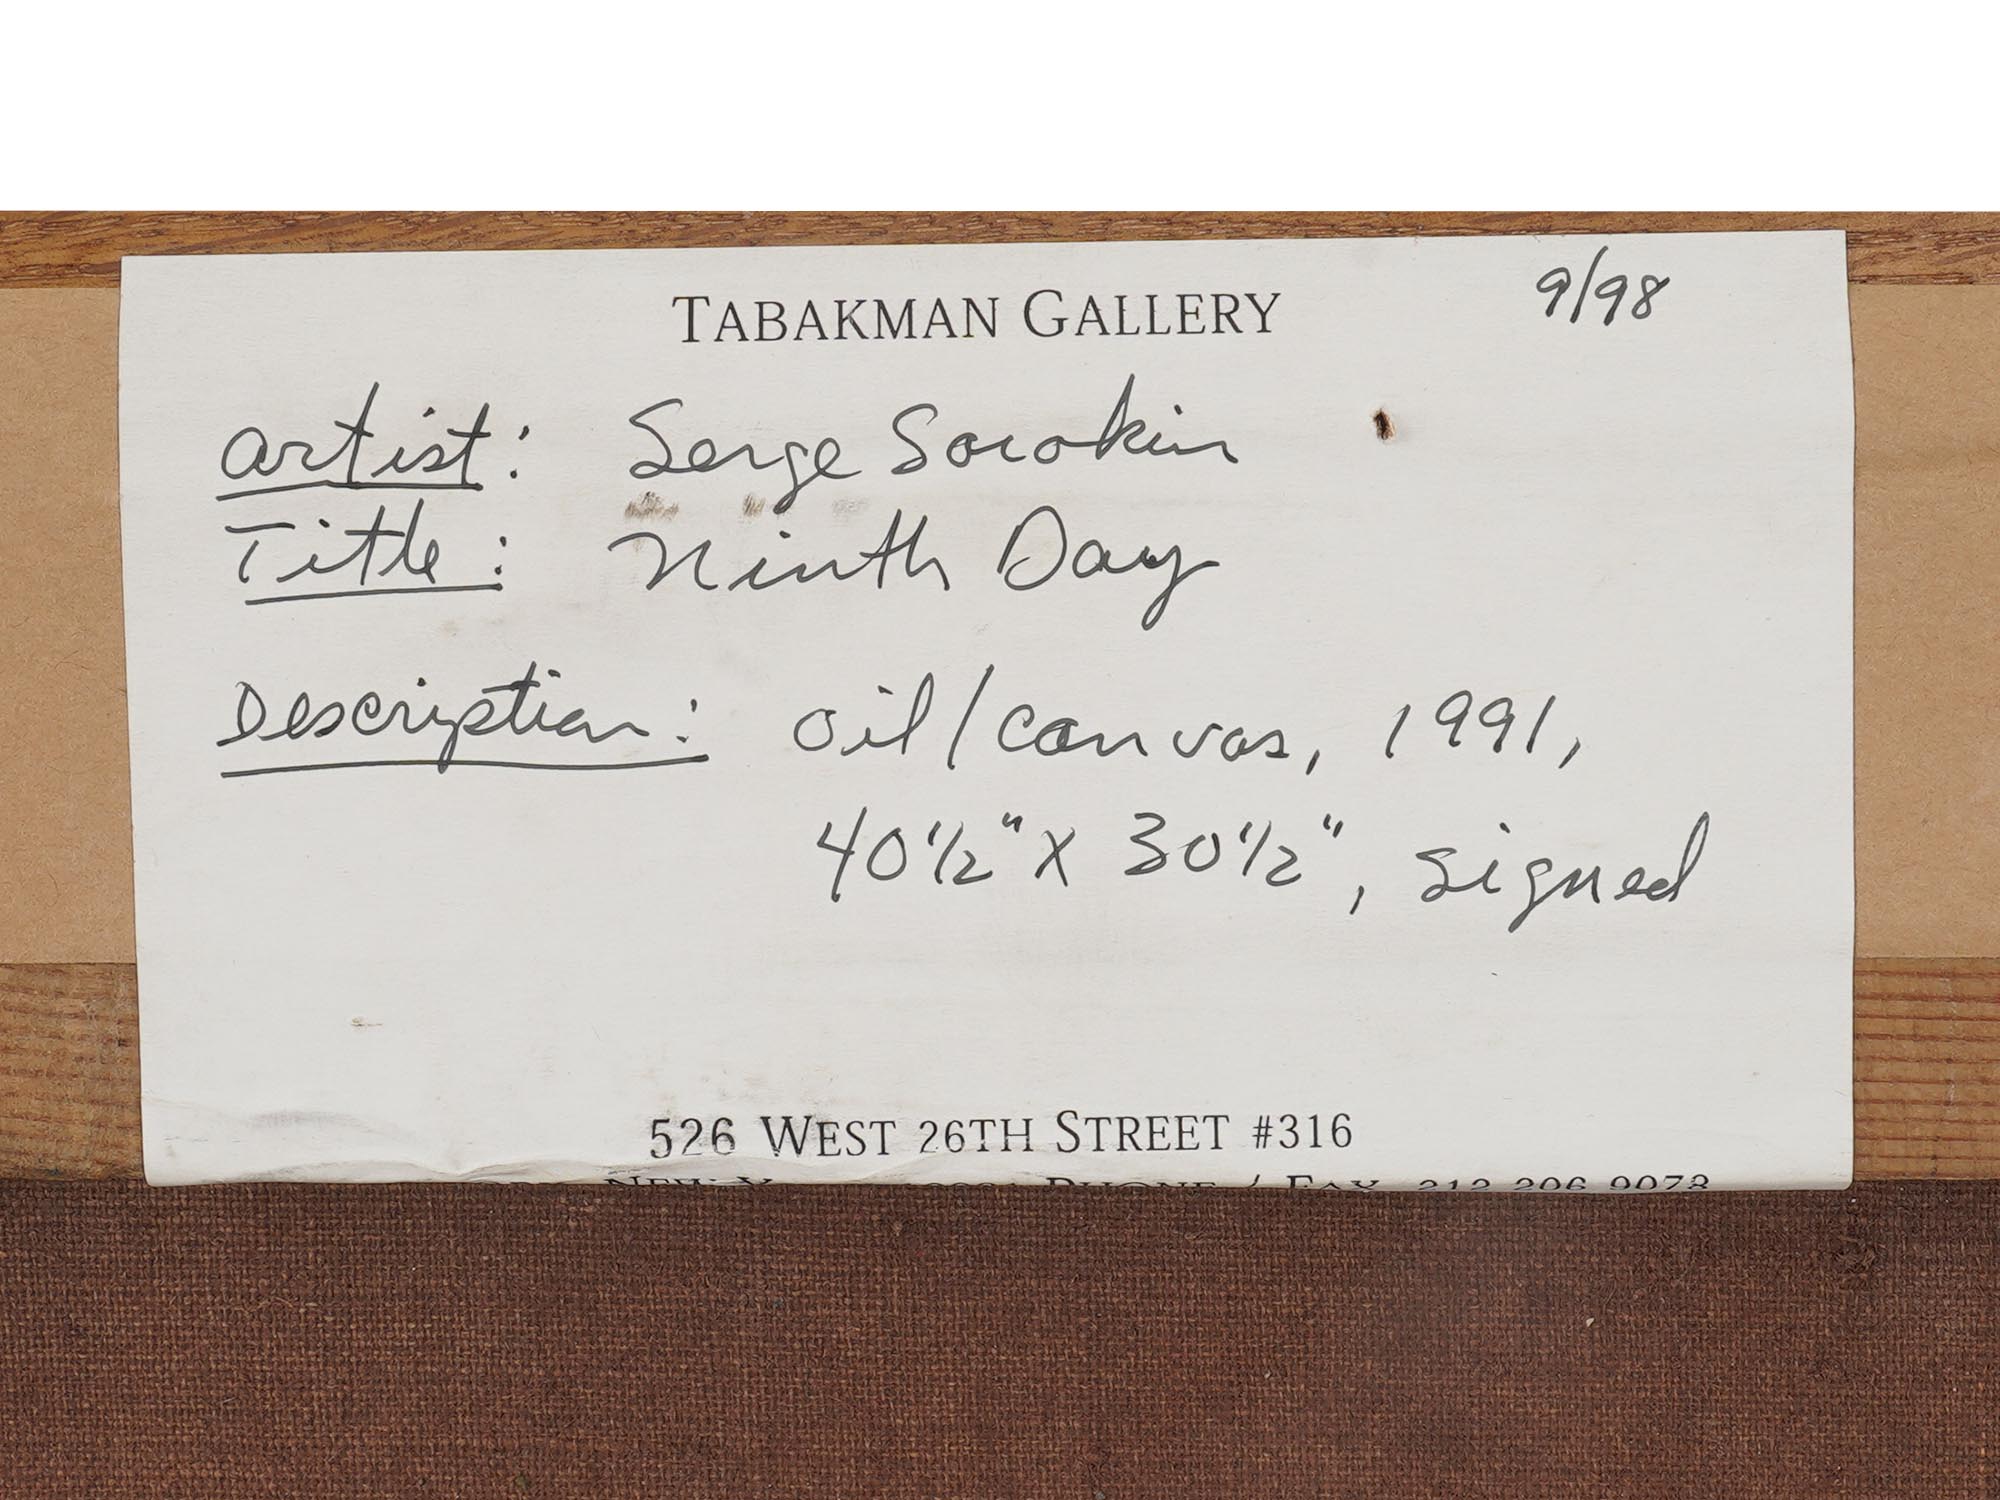 TABAKMAN GALLERY 9/98
Artist: Serge Sorokin
Title: Ninth Day
Description: oil/canvas, 1991,
40 1/2" X 30 1/2", signed
526 WEST 26TH STREET #316
NEW PHONE / FAX 212 206 9073